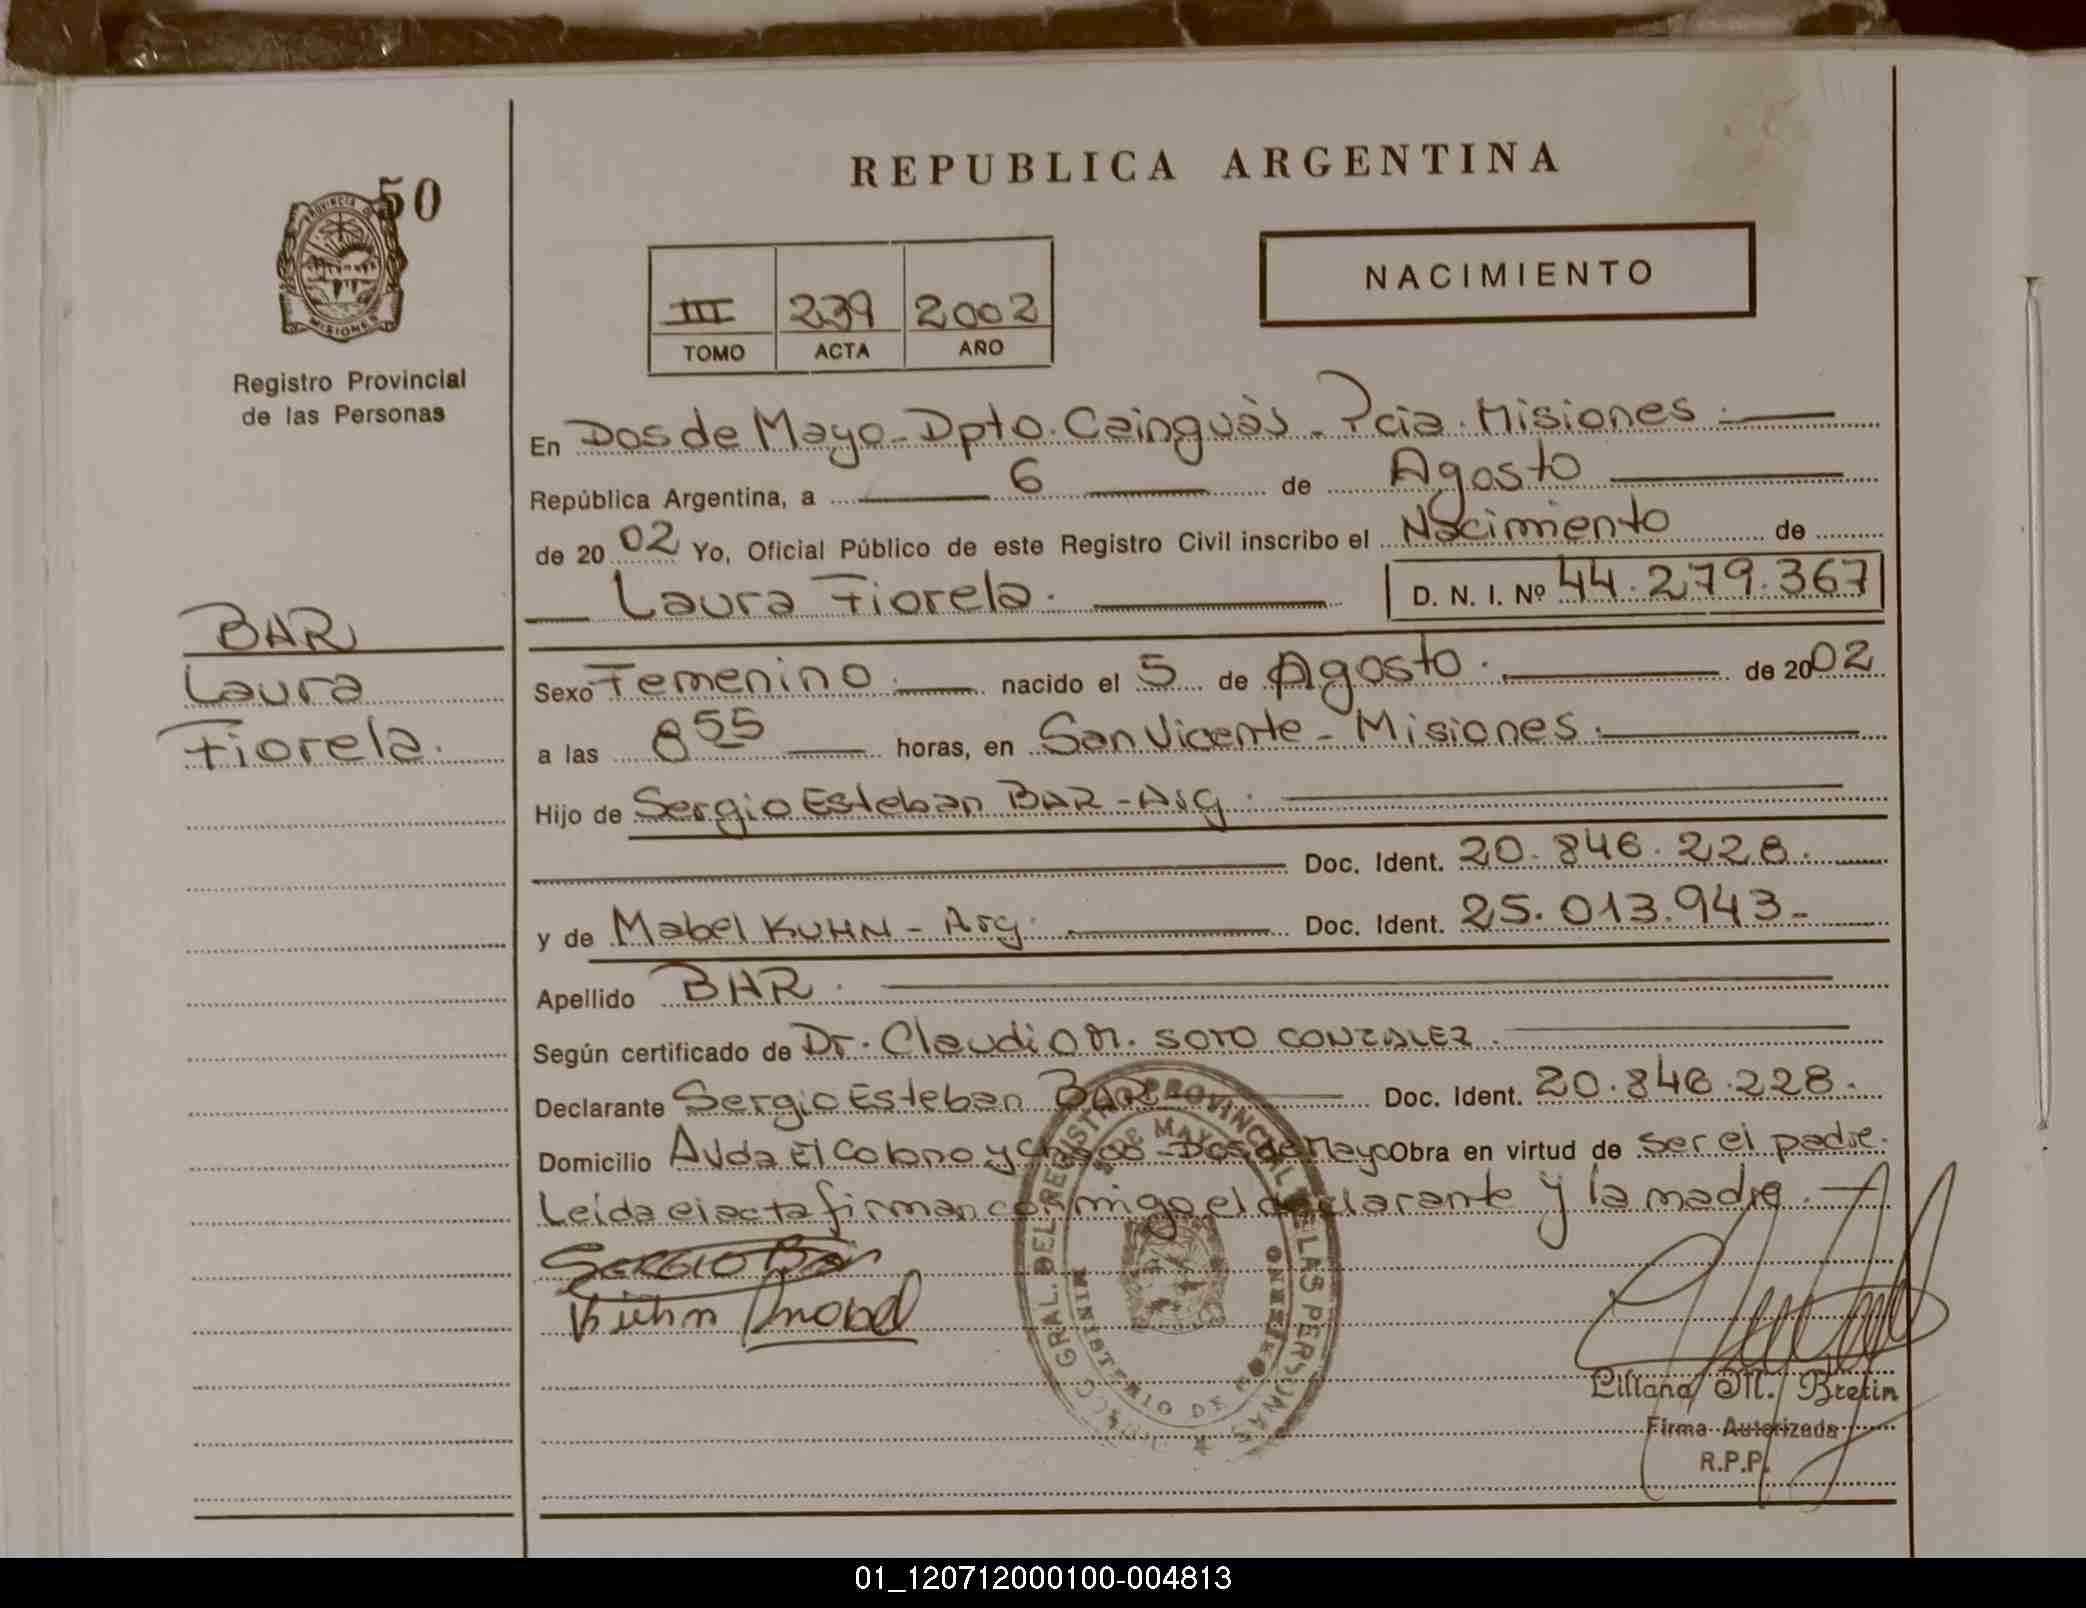 50
PROVINCIA DE
MISIONES
Registro Provincial
de las Personas
BAR
Laura
Fiorela.
REPUBLICA ARGENTINA
III 239 2002
TOMO ACTA AÑO
NACIMIENTO
En Dos de Mayo - Dpto. Cainguàs - Pcia. Misiones.
República Argentina, a 6 de Agosto
de 2002 Yo, Oficial Público de este Registro Civil inscribo el Nacimiento de
Laura Fiorela. D. N. I. Nº 44.279.367
Sexo Femenino. nacido el 5 de Agosto. de 2002
a las 8 55 horas, en San Vicente - Misiones.
Hijo de Sergio Esteban BAR - Arg.
Doc. Ident. 20.846.228.
y de Mabel KUHN - Arg. Doc. Ident. 25.013.943-
Apellido BAR.
Según certificado de Dr. Claudio M. SOTO GONZALEZ.
Declarante Sergio Esteban BAR Doc. Ident. 20.846.228.
Domicilio Avda El Colono y - Dos de Mayo Obra en virtud de ser el padre.
Leída el acta firman conmigo el declarante y la madre.
SERGIO Bar
Kuhn Mabel
GRAL. DEL REGISTRO PROVINCIAL DE LAS PERSONAS
DOS DE MAYO
MINISTERIO DE GOBIERNO
Liliana M. Bretin
Firma Autorizada
R.P.P.
01_120712000100-004813